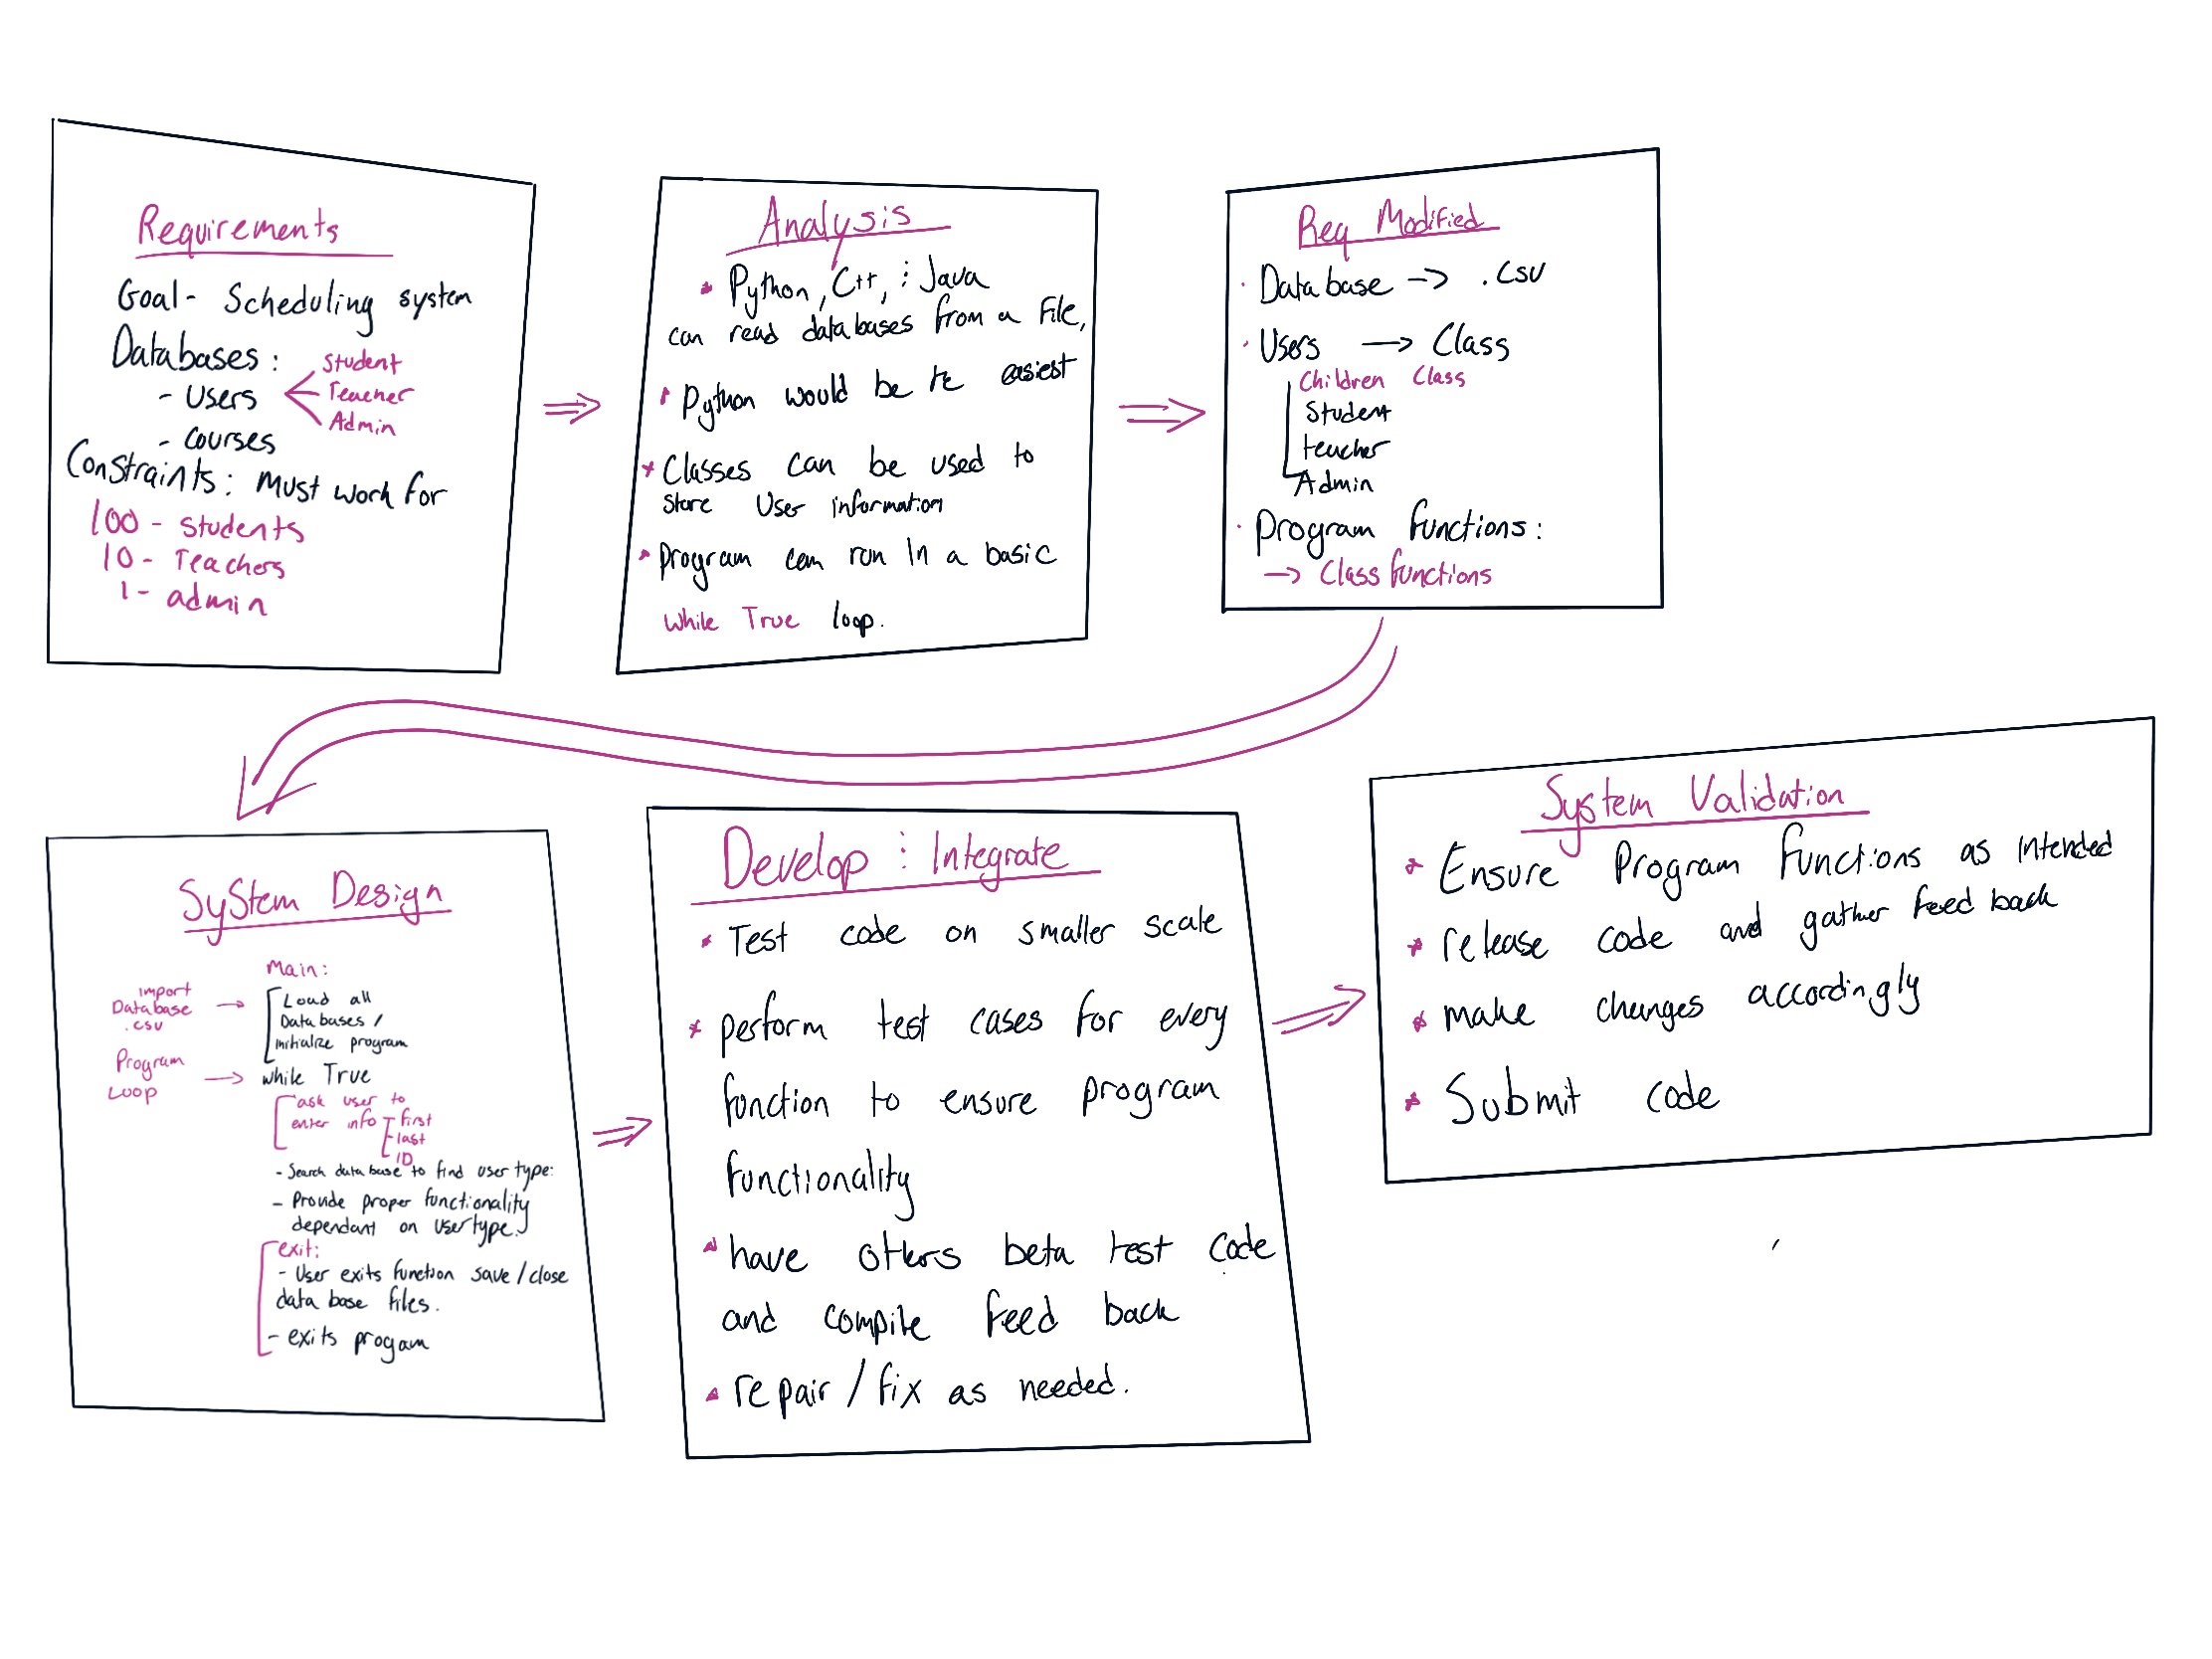 Requirements
Goal - Scheduling system
Databases:
- Users
Student
Teacher
Admin
- courses
Constraints: Must work for
100 - students
10 - Teachers
1 - admin
Analysis
Python, C++, : Java
can read databases from a File,
Python would be te easiest
Classes can be used to
store User information
Program can run in a basic
while True loop.
Req Modified
Database -> .csv
Users -> Class
Children Class
Student
teacher
Admin
Program functions:
-> Class functions
System Design
Main:
import
Database
.csv
Load all
Databases /
initialize program
Program
Loop
while True
ask user to
enter info
first
last
ID
- Search data base to find user type:
- Provide proper functionality
dependant on user type.
exit:
- User exits function save/close
data base files.
- exits progam
Develop : Integrate
Test code on smaller scale
perform test cases for every
function to ensure program
functionality
have others beta test code
and compile feed back
repair / fix as needed.
System Validation
Ensure Program functions as intended
release code and gather feed back
make changes accordingly
Submit code